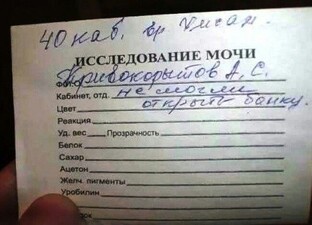 40 каб. вр. Хисам.
ИССЛЕДОВАНИЕ МОЧИ
Кривокорытов А. С.
Кабинет, отд. не могли
Цвет открыть банку.
Реакция
Уд. вес Прозрачность
Белок
Сахар
Ацетон
Желч. пигменты
Уробилин